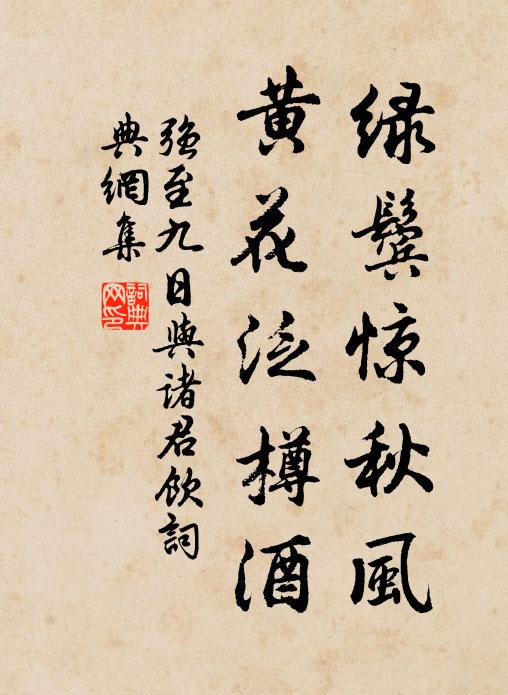 绿鬓惊秋风
黄花泛樽酒
强至九日与诸君饮词
典網集
詞典網印